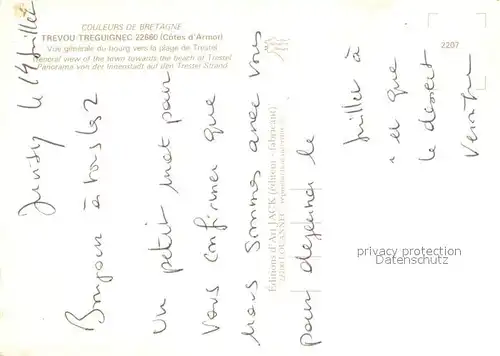 COULEURS DE BRETAGNE
TREVOU TREGUIGNEC 22660 (Côtes d'Armor)
Vue générale du bourg vers la plage de Trestel
General view of the town towards the beach of Trestel
Panorama von der Innenstadt auf den Trestel Strand
2207
Editions d'Art JACK (éditeur - fabricant)
22240 LOUANNEC
le 14 Juillet
Bonjour à vous 2
Un petit mot pour
vous confirmer que
nous sommes avec vous
pour déjeuner le
Juillet à
et que
le dessert
privacy protection
Datenschutz